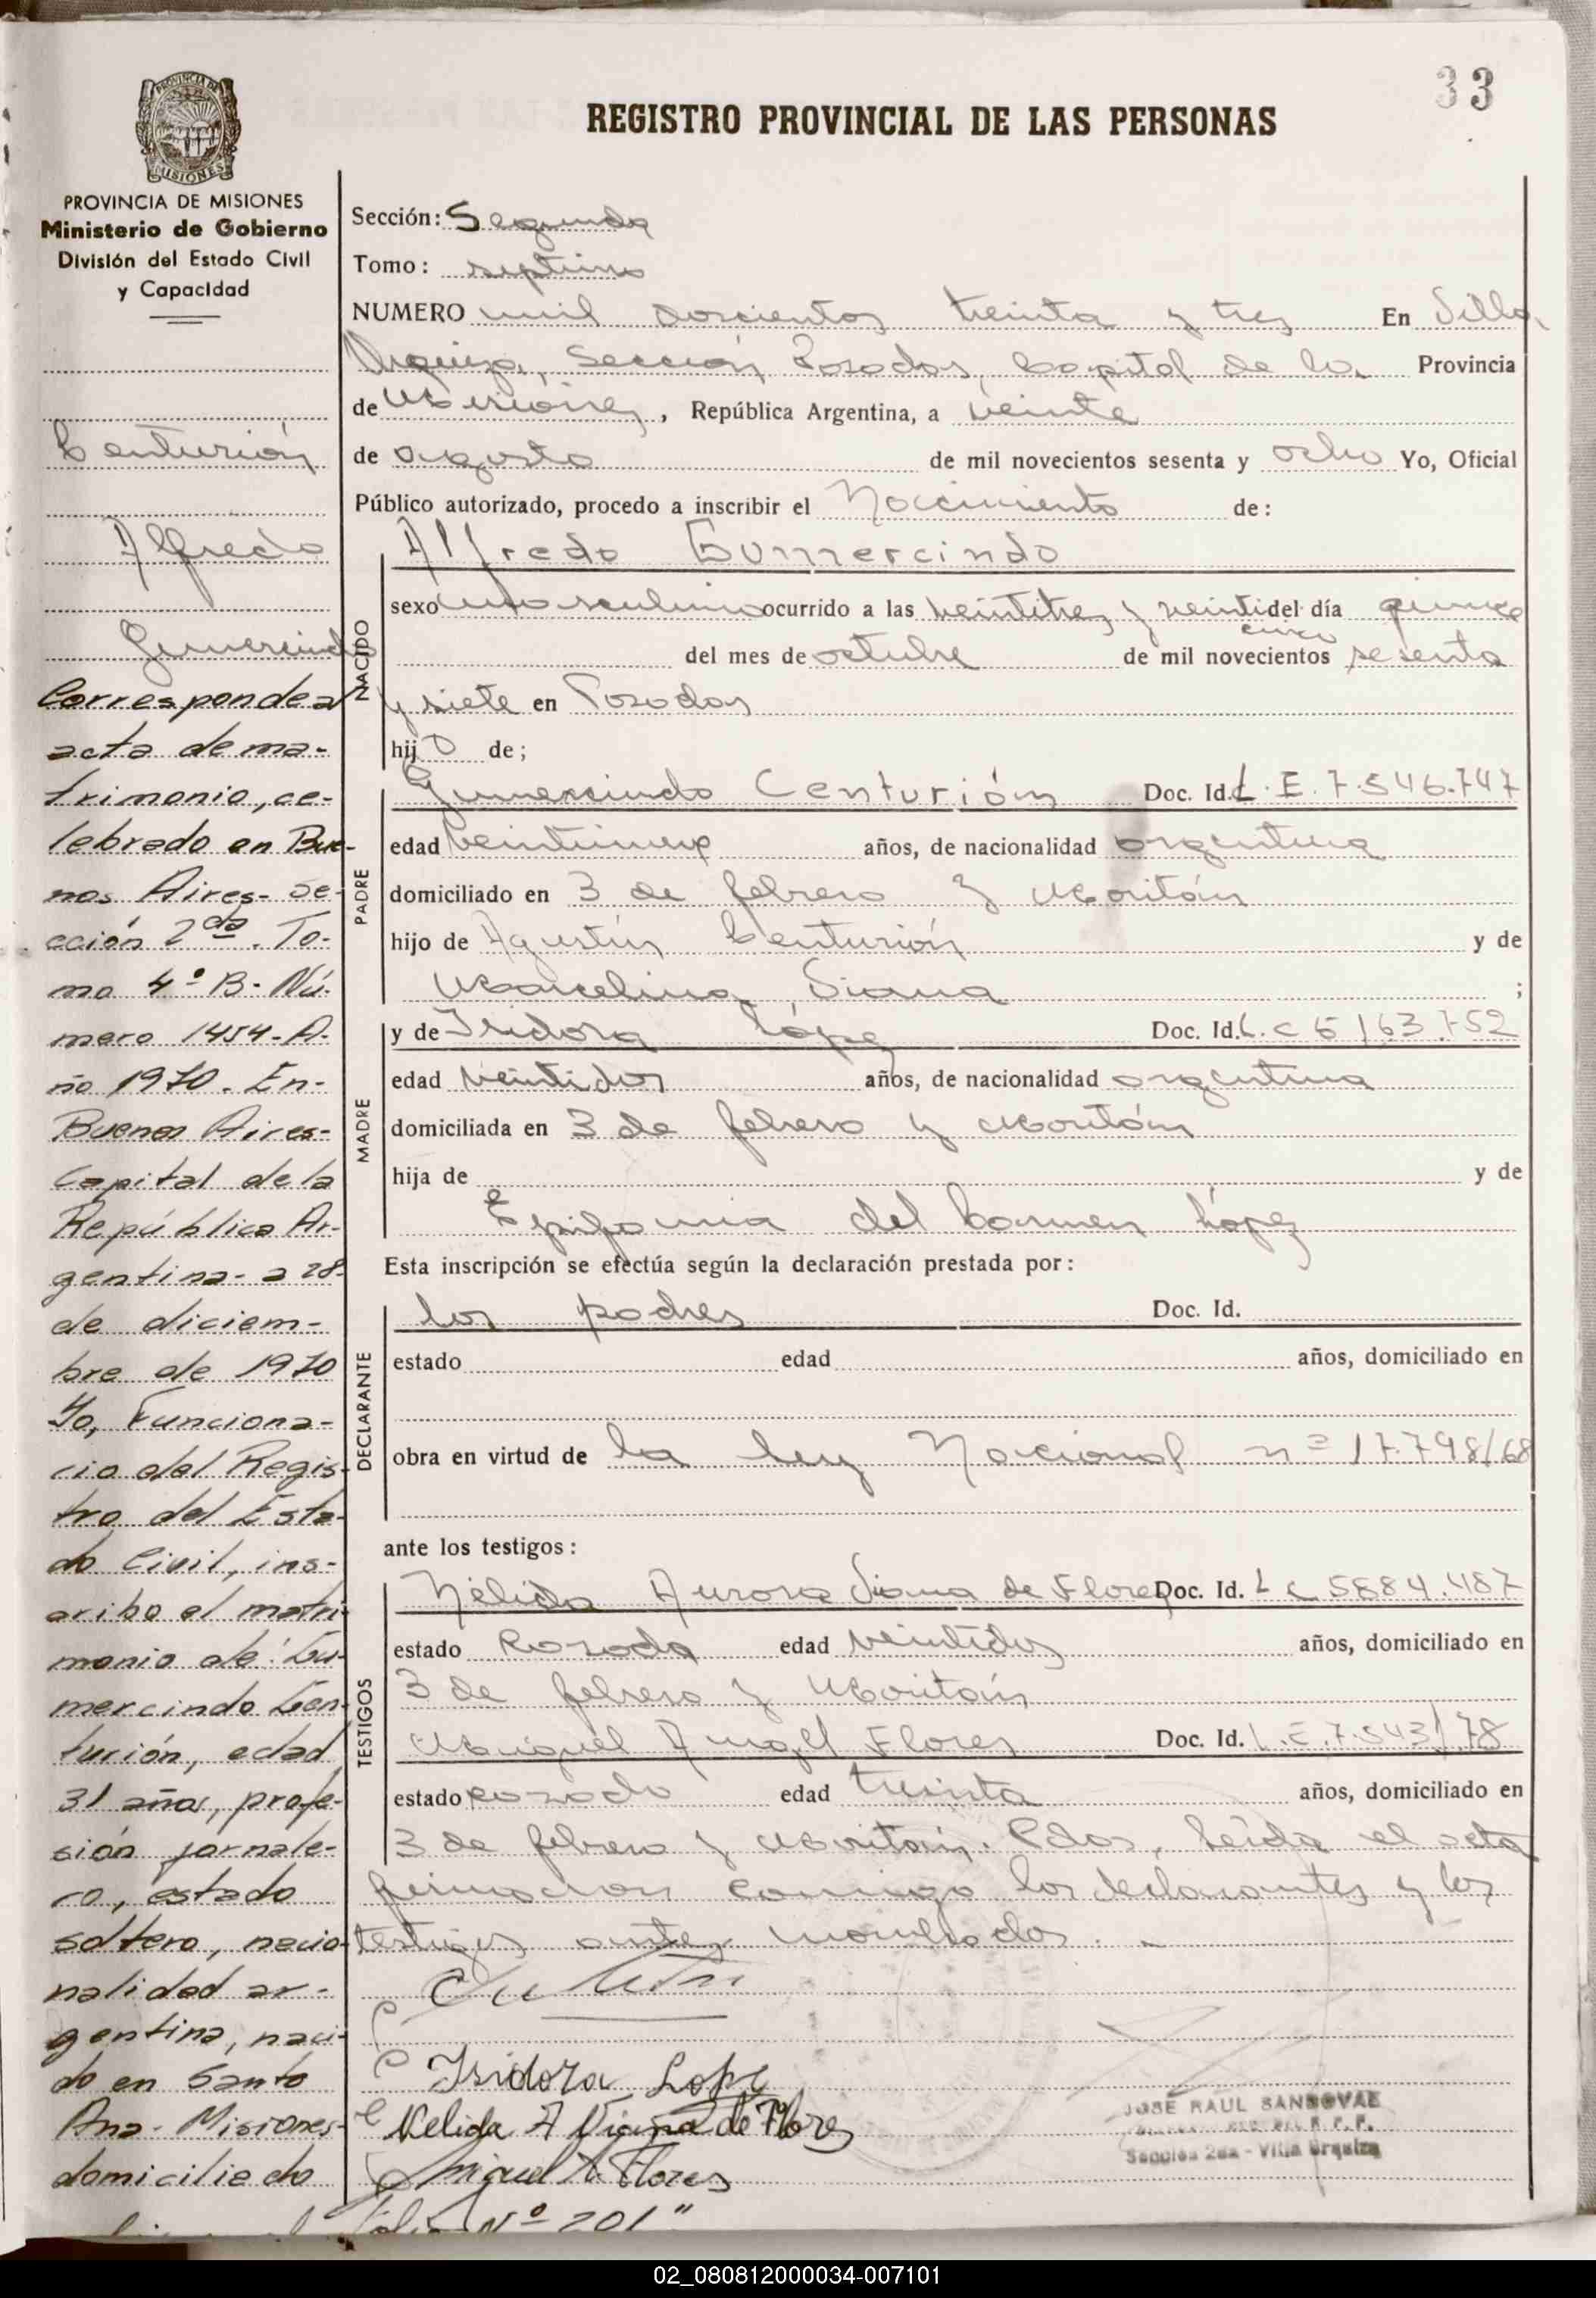 33
REGISTRO PROVINCIAL DE LAS PERSONAS
PROVINCIA DE MISIONES
MISIONES
PROVINCIA DE MISIONES
Ministerio de Gobierno
División del Estado Civil
y Capacidad
Centurión
Alfredo
Gumersindo
Corresponde al
acta de ma-
trimonio, ce-
lebrado en Bue-
nos Aires- Se-
cción 2da. To-
mo 4º B- Nú-
mero 1454- A-
ño 1970. En-
Buenos Aires-
Capital de la
República Ar-
gentina- a 28-
de diciem-
bre de 1970
Yo, Funciona-
rio del Regis-
tro del Esta-
do Civil, ins-
cribo el matri-
monio de: Gu-
mercindo Cen-
turión, edad
31 años, profe-
sión jornale-
ro, estado
soltero, nacio-
nalidad ar-
gentina, naci-
do en Santo
Ana- Misiones-
domiciliado
folio Nº 201"
Sección: Segunda
Tomo: septimo
NUMERO mil doscientos treinta y tres En Villa
Urquiza, Sección Posadas, Capital de la Provincia
de Misiones, República Argentina, a veinte
de agosto de mil novecientos sesenta y ocho Yo, Oficial
Público autorizado, procedo a inscribir el Nacimiento de:
NACIDO
Alfredo Gumercindo
sexo masculino ocurrido a las veintitres y veinti del día quince
cinco
del mes de octubre de mil novecientos sesenta
y siete en Posadas
hijo de;
PADRE
Gumersindo Centurión Doc. Id. L.E. 7.546.747
edad veintinueve años, de nacionalidad argentina
domiciliado en 3 de febrero y Moritán
hijo de Agustín Centurión y de
Marcelina Viana ;
MADRE
y de Isidora López Doc. Id. L.C 5163.752
edad veintidos años, de nacionalidad argentina
domiciliada en 3 de febrero y Moritán
hija de y de
Epifania del Carmen López
Esta inscripción se efectúa según la declaración prestada por:
DECLARANTE
los padres Doc. Id.
estado edad años, domiciliado en
obra en virtud de la ley Nacional nº 17.798/68
ante los testigos:
TESTIGOS
Nélida Aurora Viana de Flores Doc. Id. L C 5884.487
estado Casada edad veintidos años, domiciliado en
3 de febrero y Moritán
Miguel Angel Flores Doc. Id. L.E. 7.543178
estado casado edad treinta años, domiciliado en
3 de febrero y Moritán. Pdas, leída el acta
firmaron conmigo los declarantes y los
testigos antes nombrados.
Isidora Lopez
Nelida A Viana de Flores
Miguel A. Flores
JOSE RAUL SANDOVAL
Sección 2da - Villa Urquiza
02_080812000034-007101